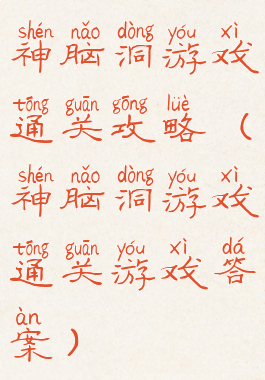 shén nǎo dòng yóu xì
神脑洞游戏
tōng guān gōng lüè
通关攻略（
shén nǎo dòng yóu xì
神脑洞游戏
tōng guān yóu xì dá
通关游戏答
àn
案）